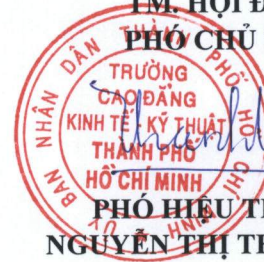 TM. HỘI Đ
PHÓ CHỦ
ỦY BAN NHÂN DÂN THÀNH PHỐ HỒ CHÍ MINH
TRƯỜNG
CAO ĐẲNG
KINH TẾ - KỸ THUẬT
THÀNH PHỐ
HỒ CHÍ MINH
PHÓ HIỆU T
NGUYỄN THỊ T